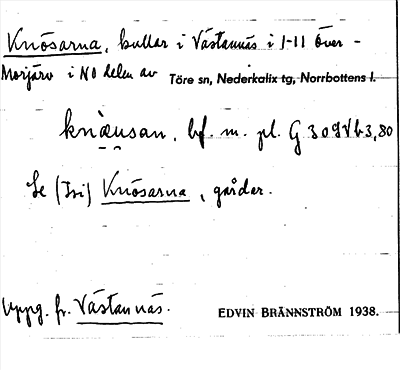 Knösarna, kullar i Västannäs i J-11 Över-
Morjärv i NO delen av Töre sn, Nederkalix tg, Norrbottens l.
knæusan, bf. m. pl. G 309Vb3,80
Se (Tri) Knösarna, gårdar.
Uppg. fr. Västannäs. EDVIN BRÄNNSTRÖM 1938.